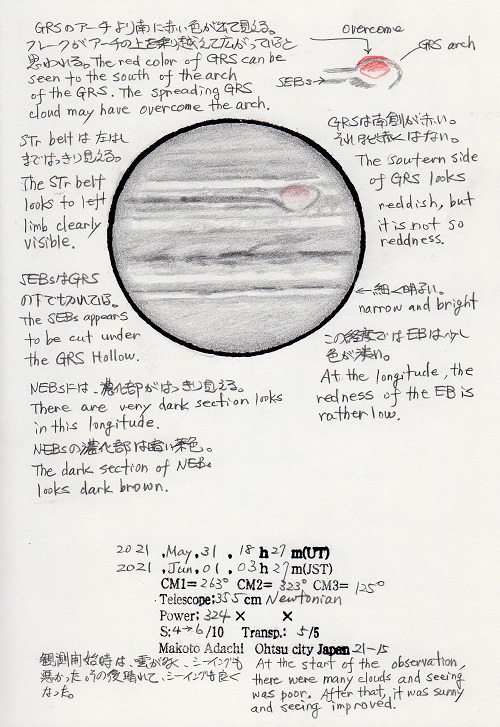 GRSのアーチより南に赤い色が出て見える。
フレークがアーチの上を乗り越えて広がっていると
思われる。The red color of GRS can be
seen to the south of the arch
of the GRS. The spreading GRS
cloud may have overcome the arch.
overcome
GRS arch
SEBs→
STr belt は左はし
まではっきり見える。
The STr belt
looks to left
limb clearly
visible.
GRSは南側が赤い。
それほど赤くはない。
The soutern side
of GRS looks
reddish, but
it is not so
reddness.
SEBsはGRS
の下で
The SEBs appears
to be cut under
the GRS Hollow.
←細く明るい。
narrow and bright
この経度ではEBは少し
色が淡い。
At the longitude, the
redness of the EB is
rather low.
NEBsには、濃化部がはっきり見える。
There are very dark section looks
in this longitude.
NEBsの濃化部は暗い茶色。
The dark section of NEBs
looks dark brown.
2021 .May.31 . 18 h 27 m(UT)
2021 .Jun.01 . 03 h 27 m(JST)
CM1= 263° CM2= 323° CM3= 125°
Telescope:355 cm Newtonian
Power: 324 × ×
S:4→6/10 Transp.: 5/5
Makoto Adachi Ohtsu city Japan 21-15
観測開始時は、雲が多く、シーイングも
悪かった。その後晴れて、シーイングも良く
なった。
At the start of the observation,
there were many clouds and seeing
was poor. After that, it was sunny
and seeing improved.